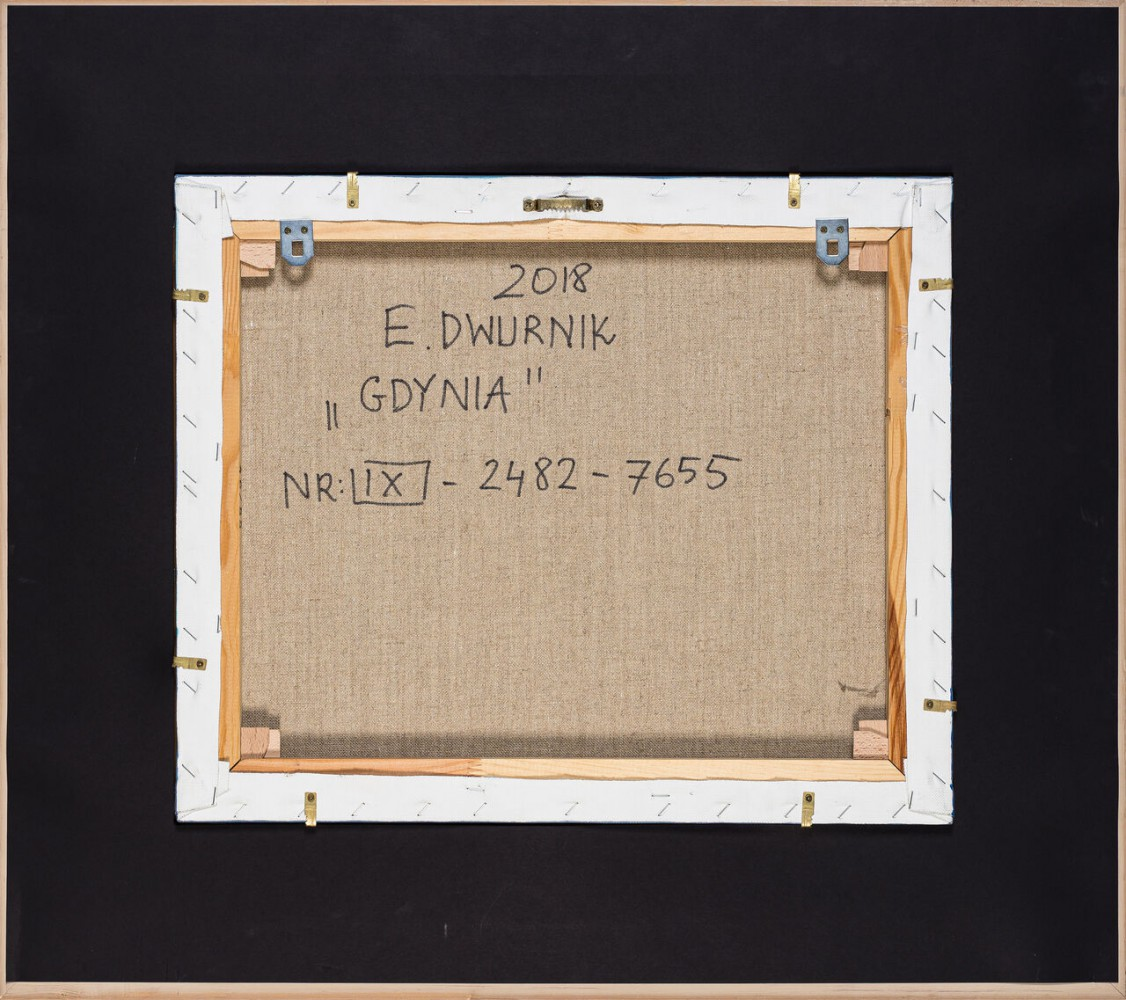 2018
E. DWURNIK
„GDYNIA"
NR: IX - 2482 - 7655